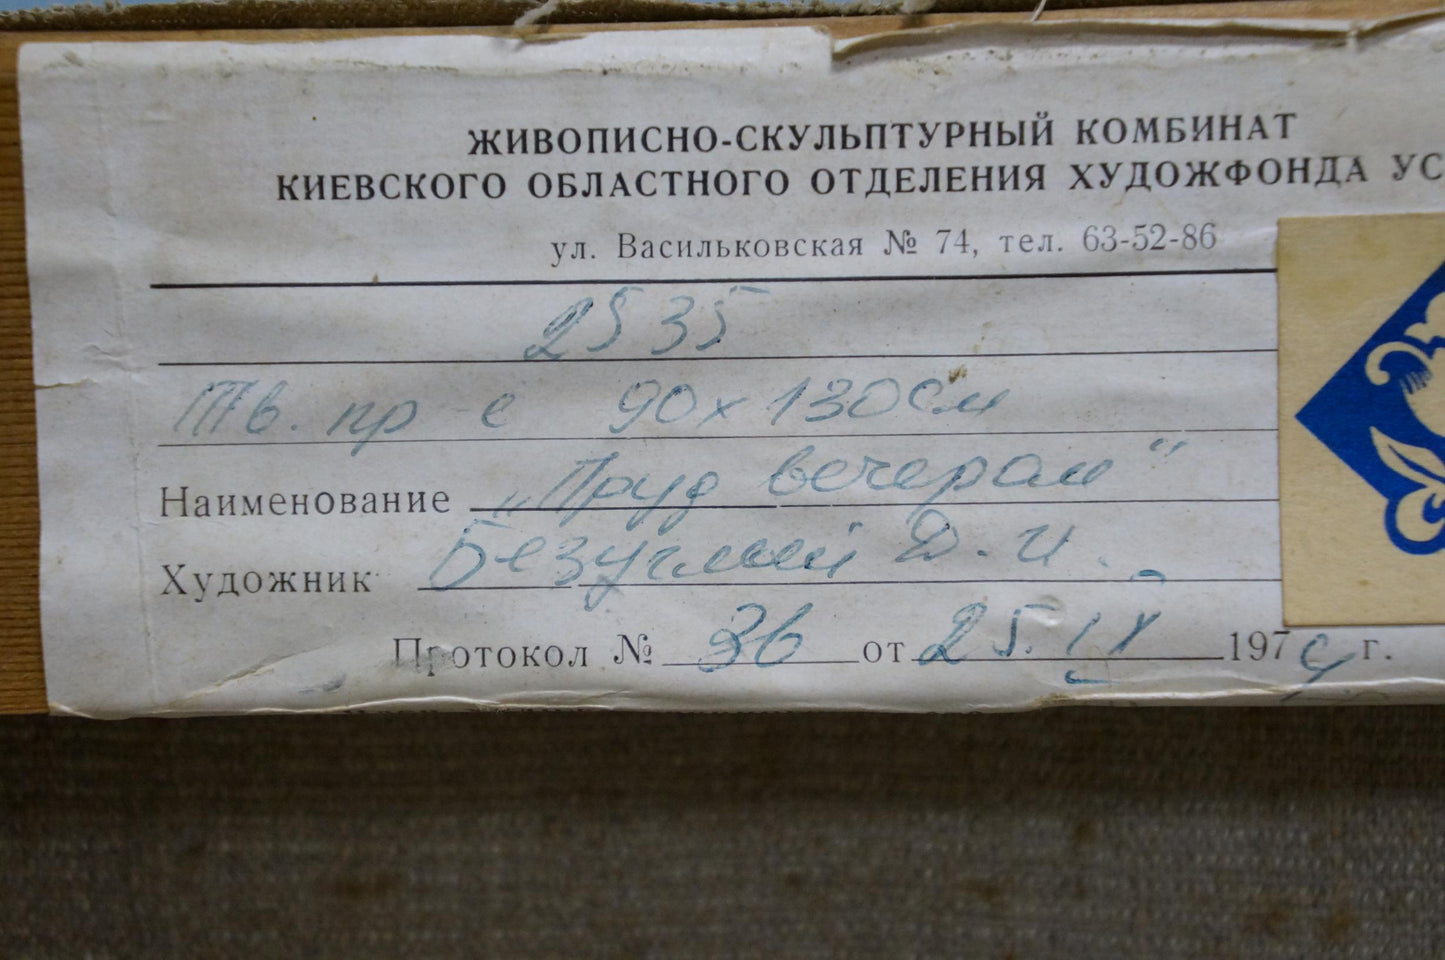 ЖИВОПИСНО-СКУЛЬПТУРНЫЙ КОМБИНАТ
КИЕВСКОГО ОБЛАСТНОГО ОТДЕЛЕНИЯ ХУДОЖФОНДА УС
ул. Васильковская № 74, тел. 63-52-86
2535
Тв. пр-е 90х130см
Наименование „Пруд вечером"
Художник Безуглый Д. И.
Протокол № 36 от 25.IX 1974 г.